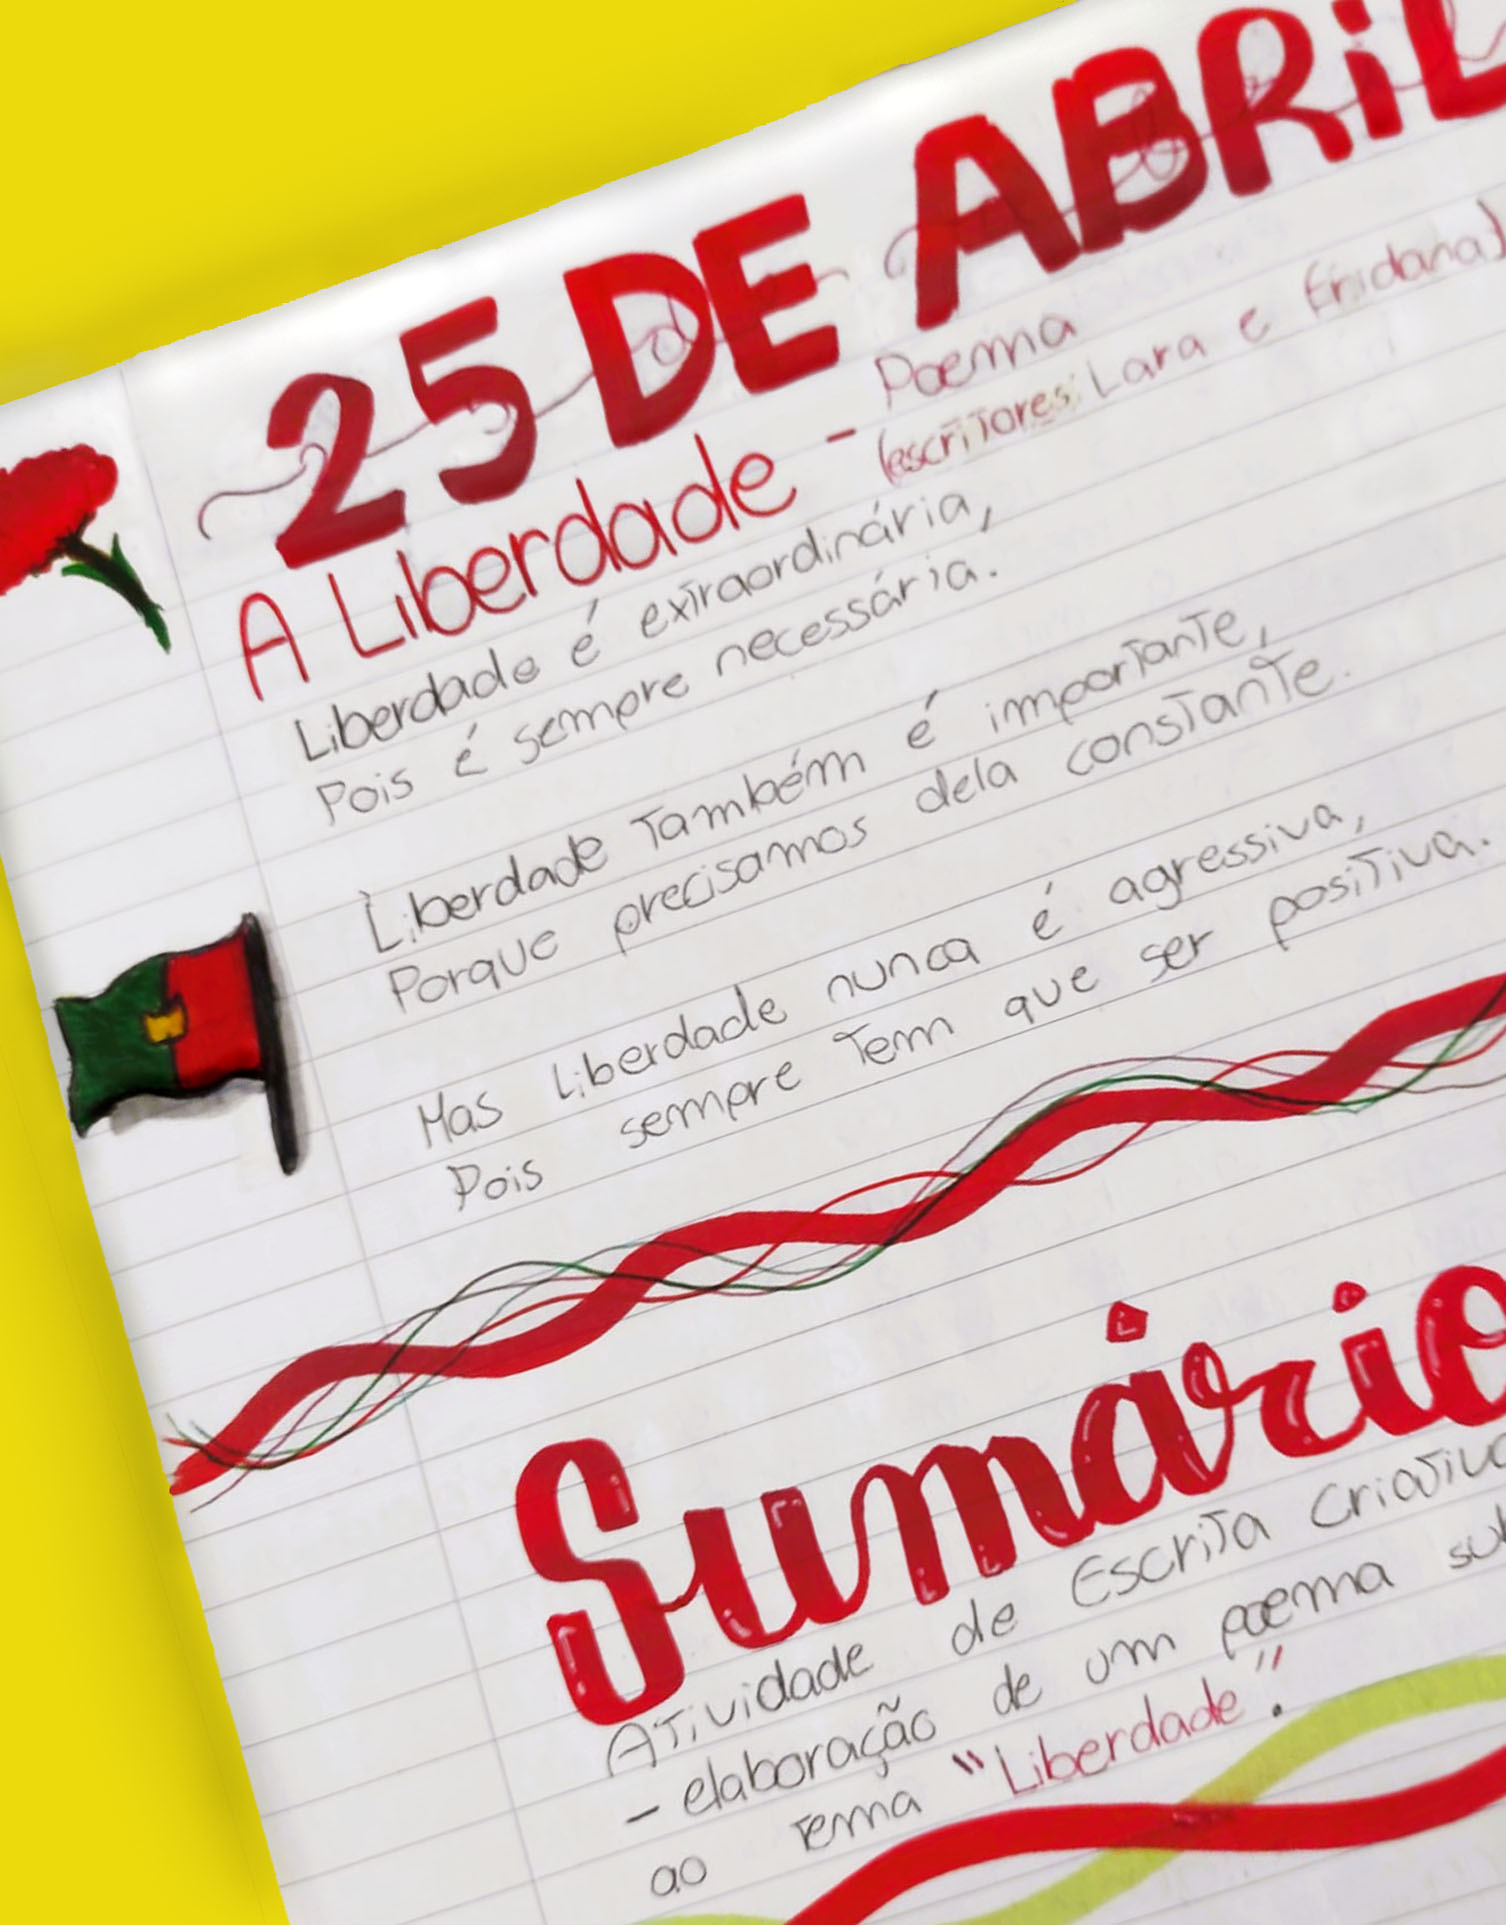 25 DE ABRIL
A Liberdade - Poema
(escritores: Lara e Eridana)
Liberdade é extraordinária,
Pois é sempre necessária.
Liberdade também é importante,
Porque precisamos dela constante.
Mas liberdade nunca é agressiva,
Pois sempre tem que ser positiva.
Sumário
Atividade de Escrita Criativa
- elaboração de um poema
ao tema "Liberdade".